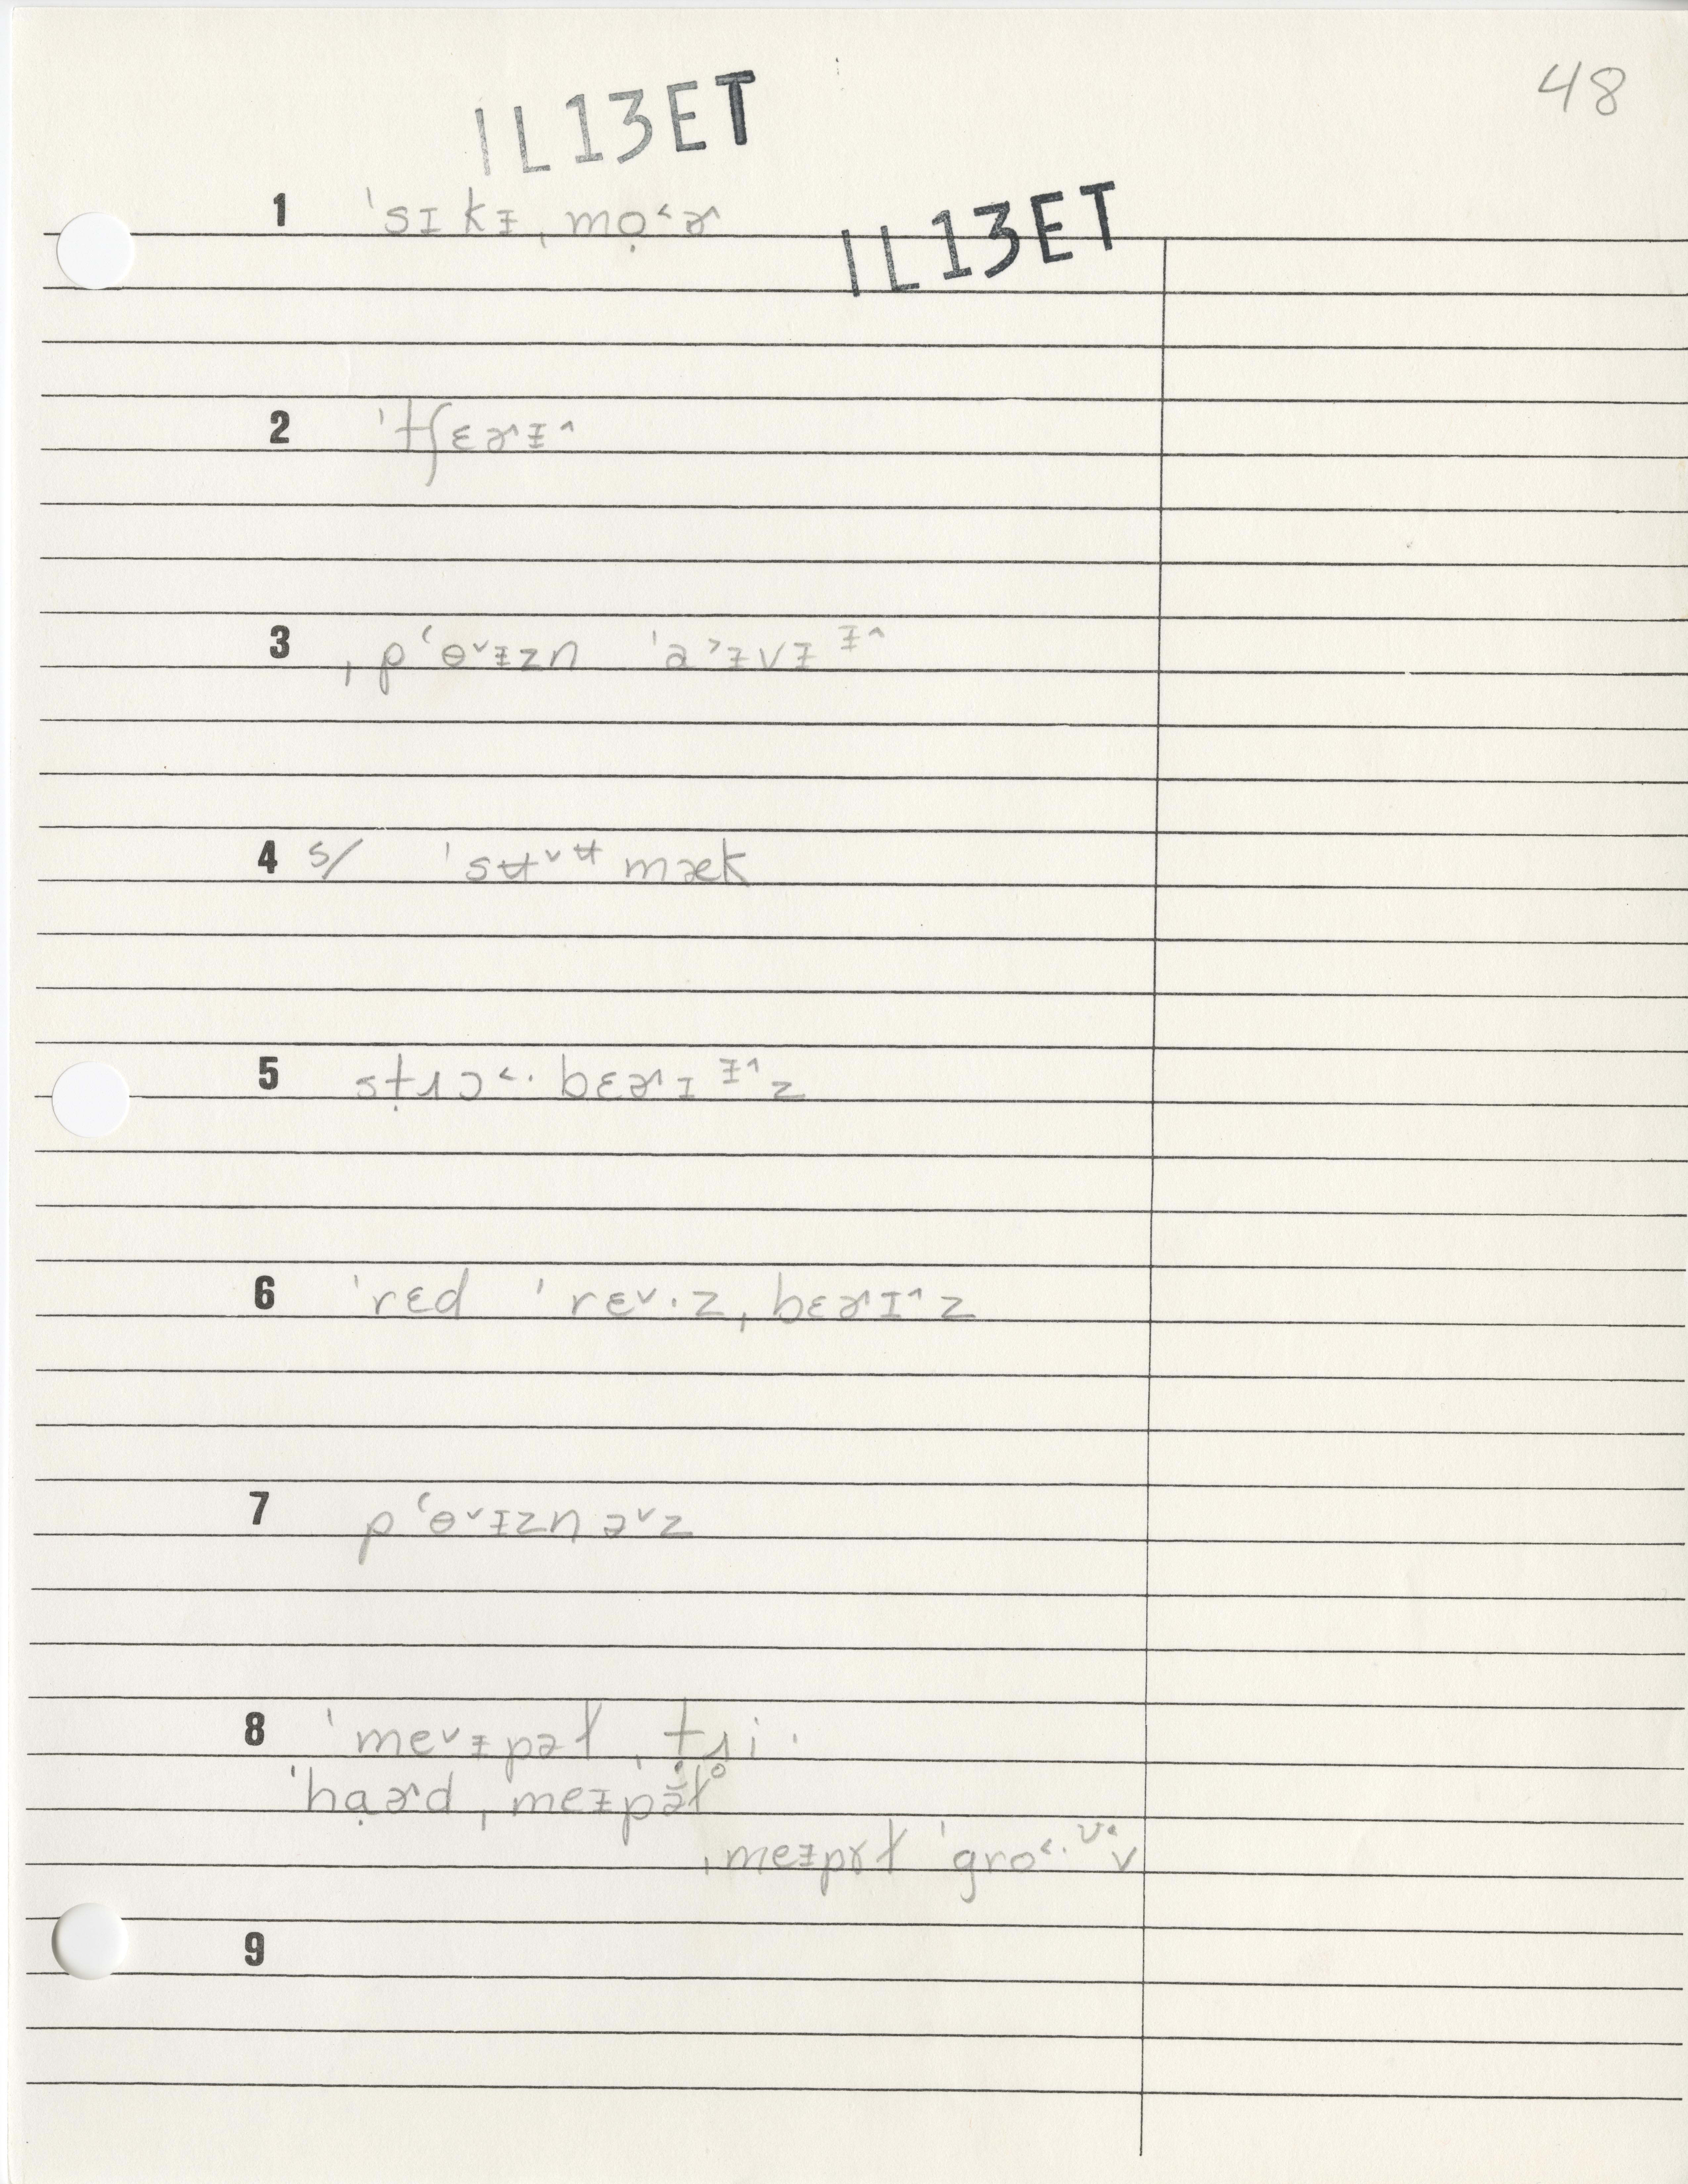 48
IL13ET
1 ˈsɪkᵻˌmọ˂ɚ
IL13ET
2 ˈtʃɛɚᵻ˄
3 ˌpʻɵ˅ᵻzn ˈa˃ᵻvᵻ ᵻ˄
4 s/ ˈsʉ˅ʉmæk
5 sṭɹɔ˂·bɛɚɪᵻ˄z
6 ˈrɛd ˈrɛ˅·zˌbɛɚɪ˄z
7 pʻɵ˅ɪznə˅z
8 ˈme˅ᵻpəɫ ˌṭɹ̥i·
ˈhạɚdˌmeᵻpə̆ɫ
ˌmeᵻpɤɫ ˈgro˂·ʊ˂v
9